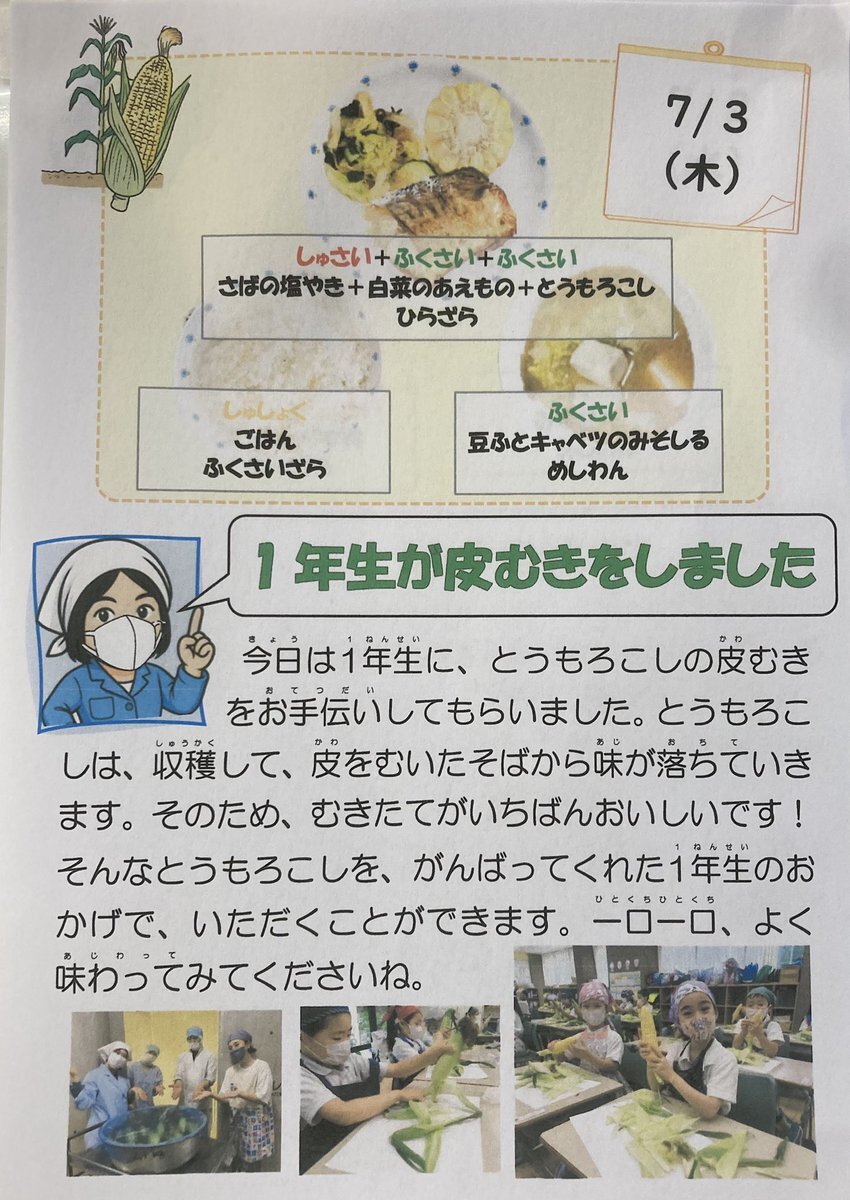 7/3
(木)
しゅさい+ふくさい+ふくさい
さばの塩やき+白菜のあえもの+とうもろこし
ひらざら
しゅしょく
ごはん
ふくさいざら
ふくさい
豆ふとキャベツのみそしる
めしわん
1年生が皮むきをしました
きょう 1ねんせい かわ
今日は1年生に、とうもろこしの皮むき
おてつだい
をお手伝いしてもらいました。とうもろこ
しゅうかく かわ あじ おちて
しは、収穫して、皮をむいたそばから味が落ちていき
ます。そのため、むきたてがいちばんおいしいです!
1ねんせい
そんなとうもろこしを、がんばってくれた1年生のお
ひとくちひとくち
かげで、いただくことができます。一口一口、よく
あじわって
味わってみてくださいね。